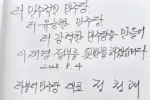 더 민주적인 민주당
더 유능한 민주당
더 강력한 민주당을 만들어
이재명 정부를 뒷받침하겠습니다.
2025. 8. 4
더불어민주당 대표 정청래